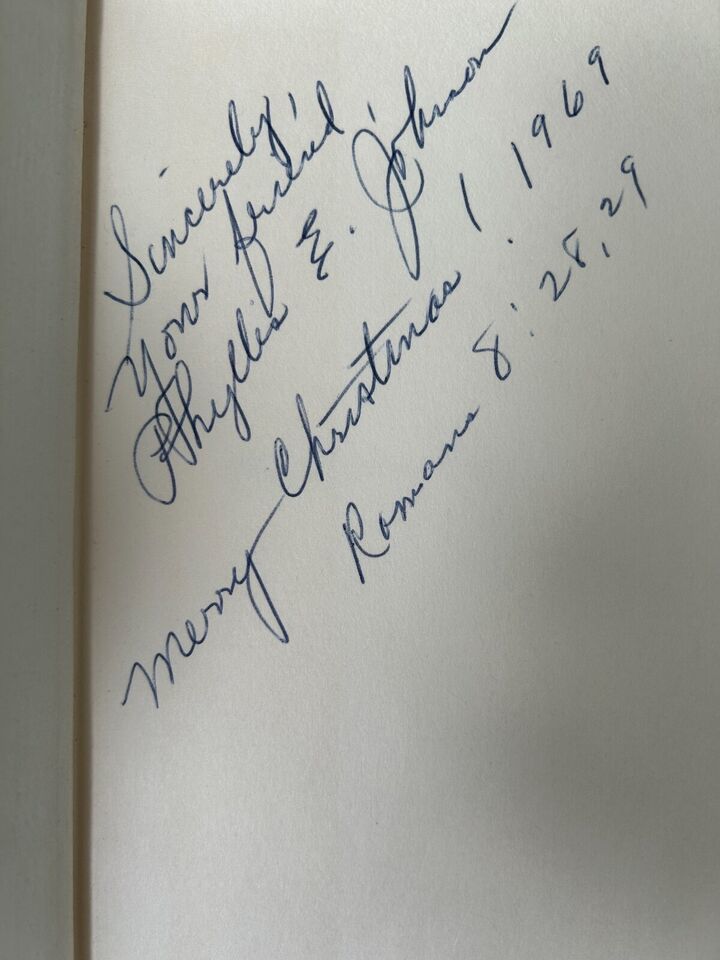 Sincerely,
Your friend,
Phyllis E. Johnson
Merry Christmas, 1969
Romans 8:28,29